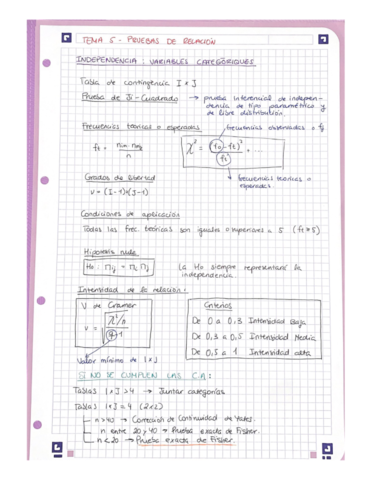 TEMA 5 - PRUEBAS DE RELACIÓN
INDEPENDENCIA: VARIABLES CATEGÓRIQUES
Tabla de contingencia I x J
Prueba de Ji-Cuadrado → prueba inferencial de indepen-
dencia de tipo paramétrico y
de libre distribución.
Frecuencias teóricas o esperadas
frecuencias observadas = fo
ft = / n
χ² = (fo - ft)² / (ft) + ...
frecuencias teóricas o
esperadas.
Grados de libertad
v = (I-1)·(J-1)
Condiciones de aplicación
Todas las frec. teóricas son iguales o superiores a 5 (ft ≥ 5)
Hipótesis nula
H0: =
La H0 siempre representará la
independencia.
Intensidad de la relación:
V de Cramer
V = √ χ²/n / -1
Valor mínimo de I x J
Criterios
De 0 a 0,3 Intensidad Baja
De 0,3 a 0,5 Intensidad Media
De 0,5 a 1 Intensidad alta
SI NO SE CUMPLEN LAS C.A:
Tablas I x J > 4 → Juntar categorías
Tablas I x J = 4 (2x2)
n > 40 → Corrección de Continuidad de Yates.
n entre 20 y 40 → Prueba exacta de Fisher.
n < 20 → Prueba exacta de Fisher.